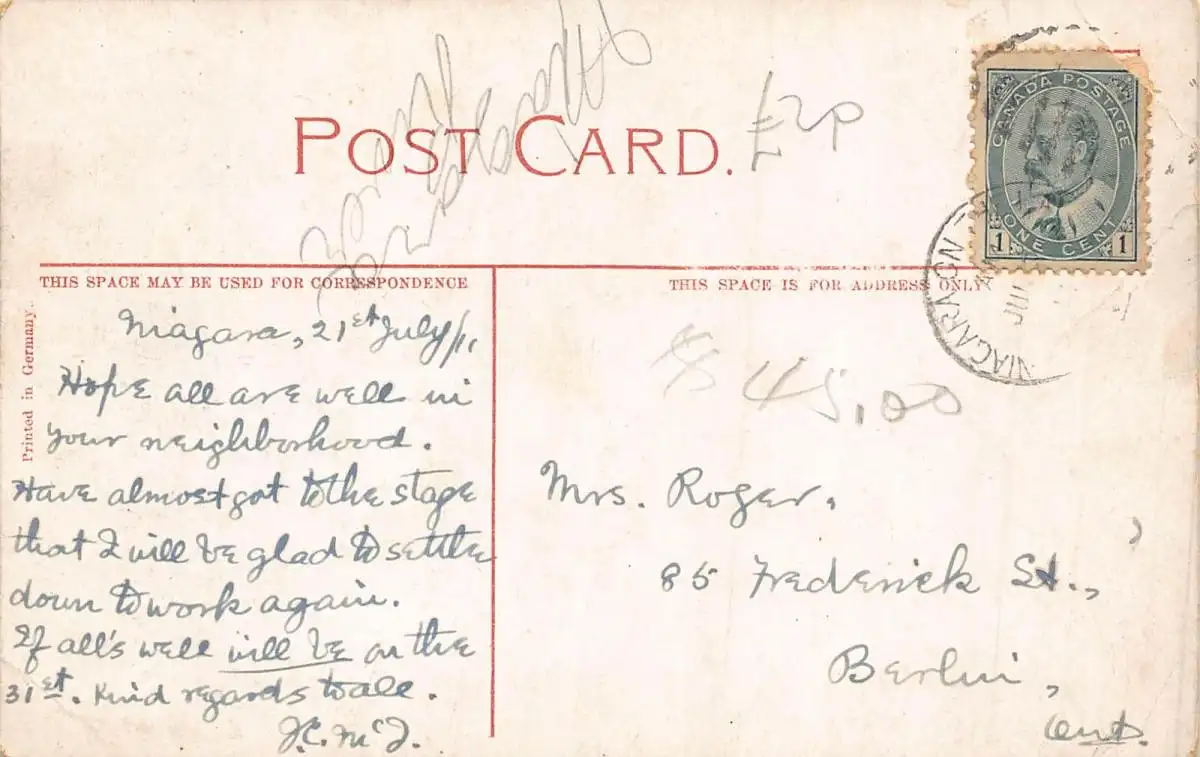 POST CARD.
£2p
CANADA POSTAGE
ONE CENT
1 1
NIAGARA-ON-
JUL
THIS SPACE MAY BE USED FOR CORRESPONDENCE
THIS SPACE IS FOR ADDRESS ONLY
Printed in Germany
Niagara, 21st July/11
Hope all are well in
your neighborhood.
Have almost got to the stage
that I will be glad to settle
down to work again.
If all's well will be on the
31st. Kind regards to all.
$45.00
Mrs. Roger,
85 Frederick St.,
Berlin,
Ont.